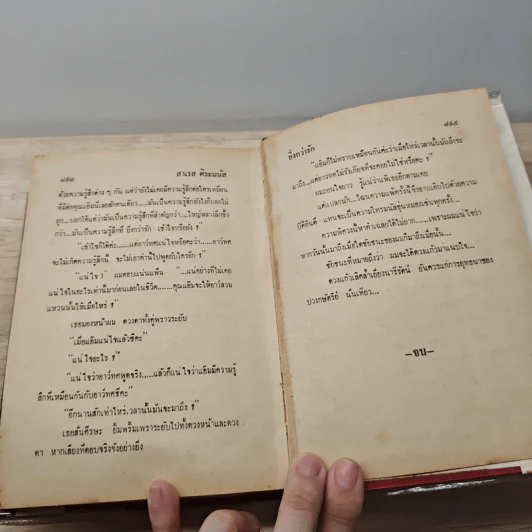 ๘๕๘ สาเรส ศิรธมนัส
ด้วยความรู้สึกต่าง ๆ กัน แต่ว่ายังไม่เคยมีความรู้สึกต่อใครเหมือน
ที่มีต่อคุณแย้มนี่เลยสักคนเดียว....มันเป็นความรู้สึกยังไงก็บอกไม่
ถูก...บอกได้แต่ว่ามันเป็นความรู้สึกที่สำคัญกว่า....ใหญ่หลวงลึกซึ้ง
กว่า...มันเป็นความรู้สึกที่ ยิ่งกว่ารัก เข้าใจหรือยัง ?"
"เข้าใจก็ได้ค่ะ.....แต่อาว์ทศแน่ใจหรือคะว่า....อาว์ทศ
จะไม่เกิดความรู้สึกนี้ จะไม่เอาคำนี้ไปพูดกับใครอีก ?"
"แน่ใจ !" ผมตอบแน่นแฟ้น "....แน่อย่างที่ไม่เคย
แน่ใจในอะไรเท่านี้มาก่อนเลยในชีวิต......คุณแย้มจะให้อาว์สวม
แหวนนั้นให้เมื่อไหร่ ?"
เธอมองหน้าผม ดวงตาทั้งคู่พราวระยับ
"เมื่อแย้มแน่ใจแล้วซีคะ"
"แน่ใจอะไร ?"
"แน่ใจว่าอาว์ทศพูดจริง.....แล้วก็แน่ใจว่าแย้มมีความรู้
สึกที่เหมือนกันกับอาว์ทศซีคะ"
"อีกนานสักเท่าไหร่,เวลานั้นมันจะมาถึง ?"
เธอสั่นศีรษะ ยิ้มพริ้มเพราระยับไปทั้งดวงหน้าและดวง
ตา หากเสียงที่ตอบจริงจังอย่างยิ่ง
ยิ่งกว่ารัก ๘๕๙
"แย้มก็ไม่ทราบเหมือนกันค่ะว่าเมื่อไหร่เวลานั้นมันถึงจะ
มาถึง....แต่อาว์ทศไม่รังเกียจที่จะคอยไม่ใช่หรือคะ ?"
ผมถอนใจยาว รู้แน่ว่าแพ้เธออีกตามเคย
แต่แปลกนัก....ในความแพ้ครั้งนี้
ปีติยินดี แทนจะเป็นความโทรมนัสขุ่นหมองเช่นทุกครั้ง.
ความพิศวงนี้หาคำเฉลยได้ไม่ยาก.....เพราะผมแน่ใจว่า
หากวันนั้นมาถึงเมื่อใดชัยชนะของผมก็มาถึงเมื่อนั้น...
ชัยชนะที่หมายถึงว่า ผมจะได้ดวงแก้วมาแนบใจ...
ดวงแก้วเลิศล้ำเยี่ยงนารีรัตน์ อันควรแก่การยุทธนาของ
ปวงกษัตริย์ นั่นเทียว...
—จบ—